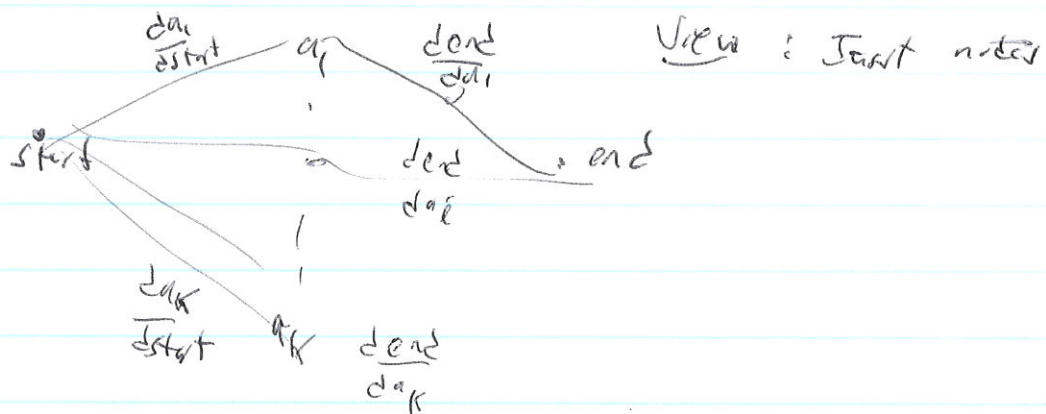 da₁/dstart
a₁
dend/da₁
View : Insert notes
start
dend/daᵢ
end
daₖ/dstart
aₖ
dend/daₖ